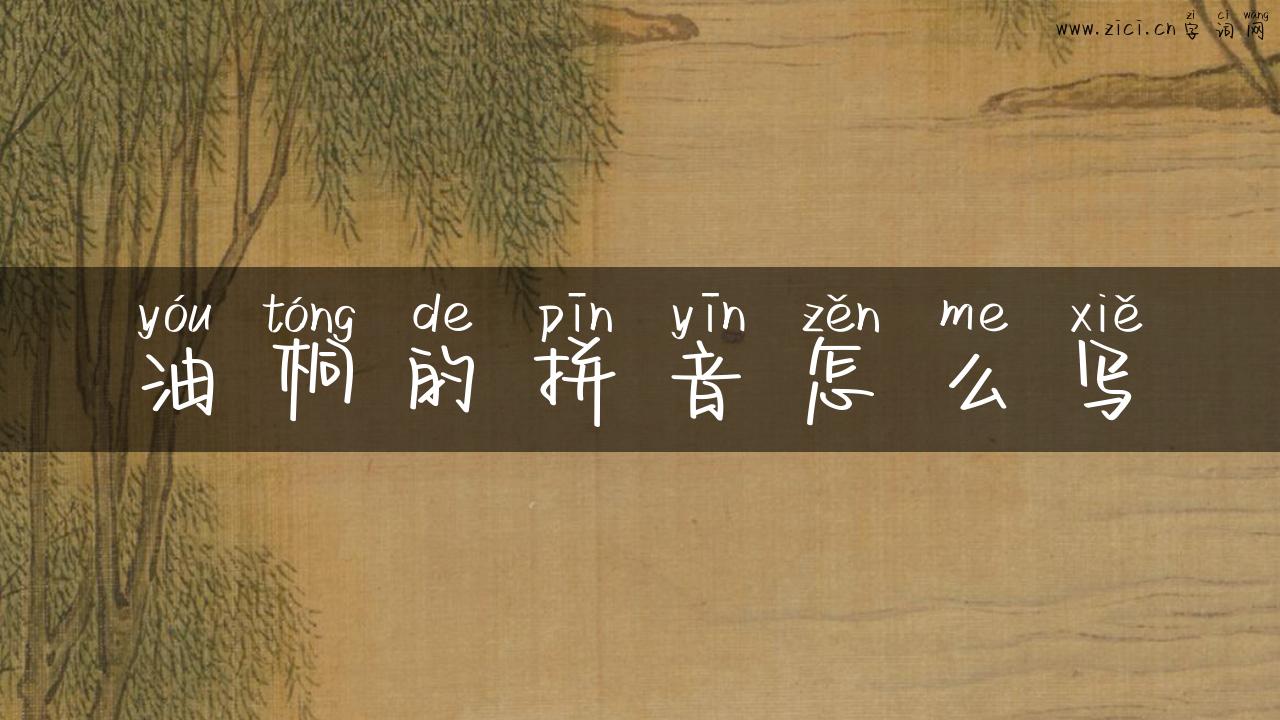 zì cí wǎng
www.zici.cn字词网
yóu tóng de pīn yīn zěn me xiě
油桐的拼音怎么写